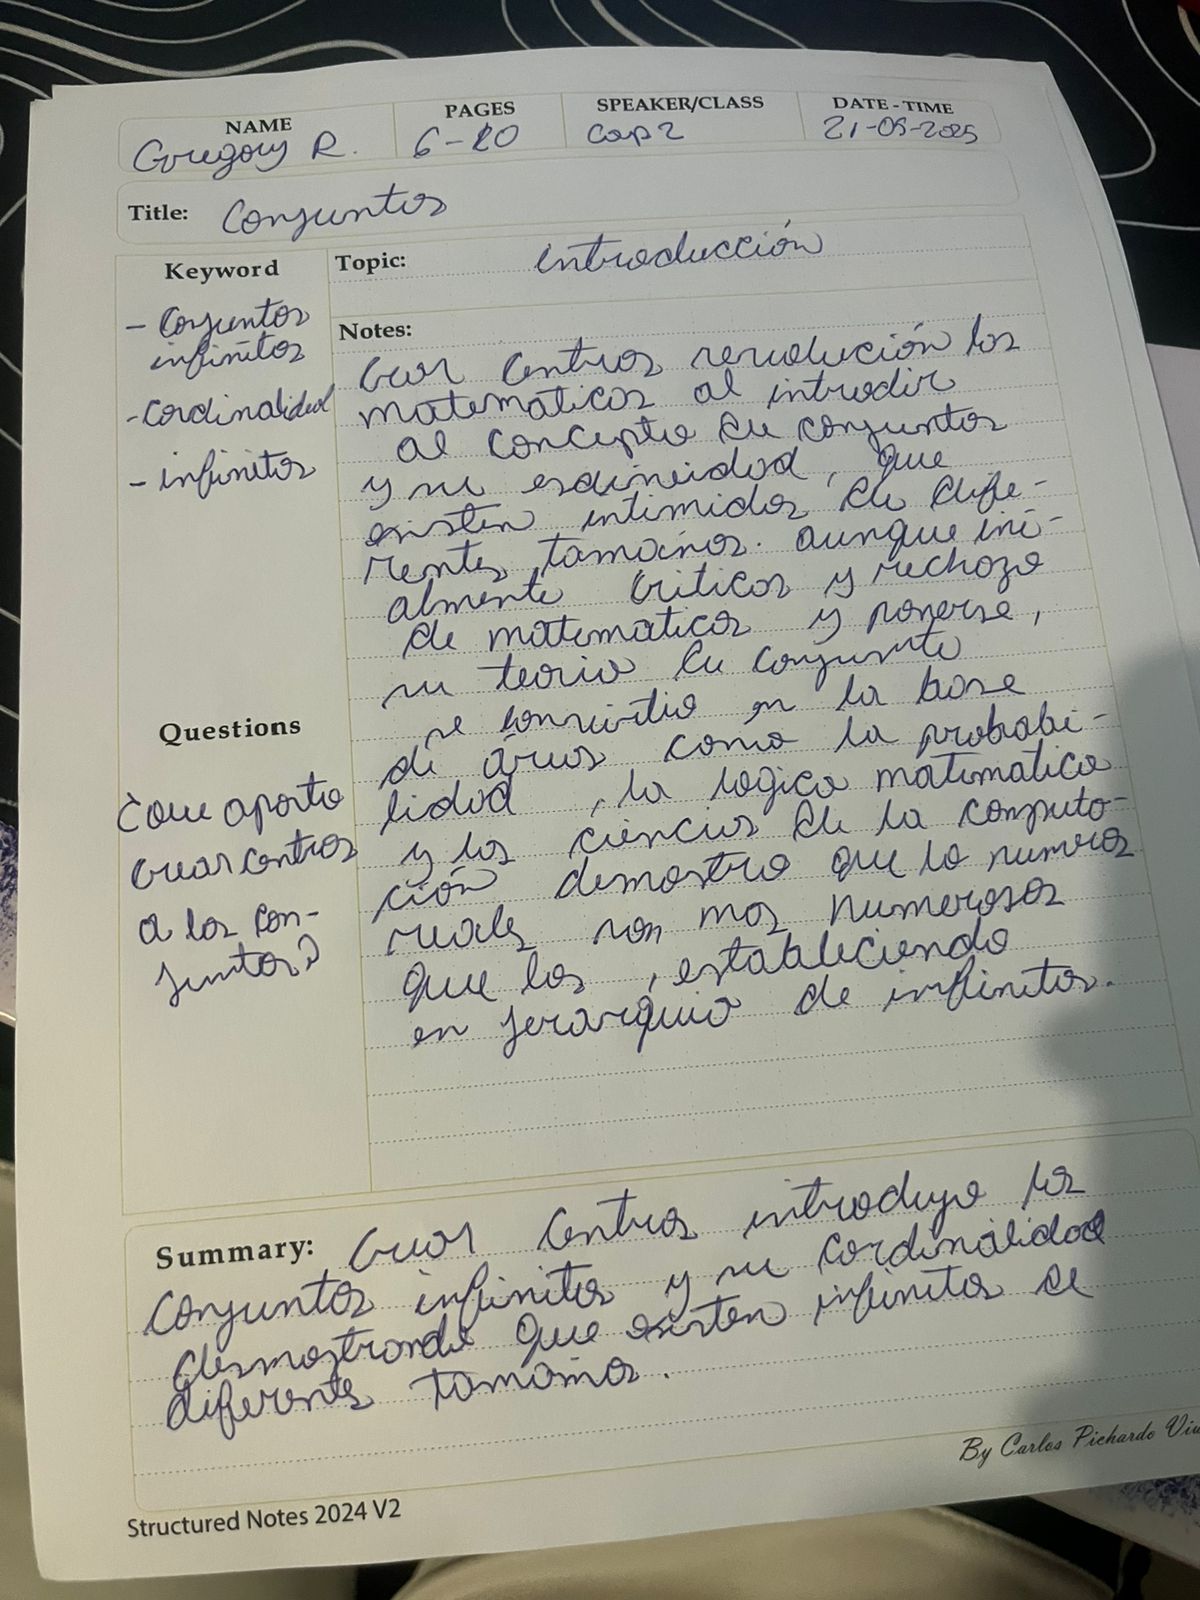 NAME PAGES SPEAKER/CLASS DATE-TIME
Gregory R. 6-20 cap 2 21-05-2025
Title: Conjuntos
Keyword
- Conjuntos
infinitos
- cardinalidad
- infinitos
Topic: introducción
Notes:
los
matematicos al introdir
al concepto de conjuntos
y su , que
existen de dife-
rentes tamaños. aunque ini-
almente criticos y rechazo
de matematicos y ponerse,
su teoria de conjunto
se convirtio en la base
de áreas como la probabi-
lidad, la logica matematica
y las ciencias de la computa-
ción demostro que lo numeros
reales son mas numerosos
que los , estableciendo
en jerarquia de infinitos.
Questions
¿Que aporto
a los con-
juntos?
Summary: introdujo los
conjuntos infinitos y su cardinalidad
demostrando que existen infinitos de
diferentes tamaños.
By Carlos Pichardo
Structured Notes 2024 V2